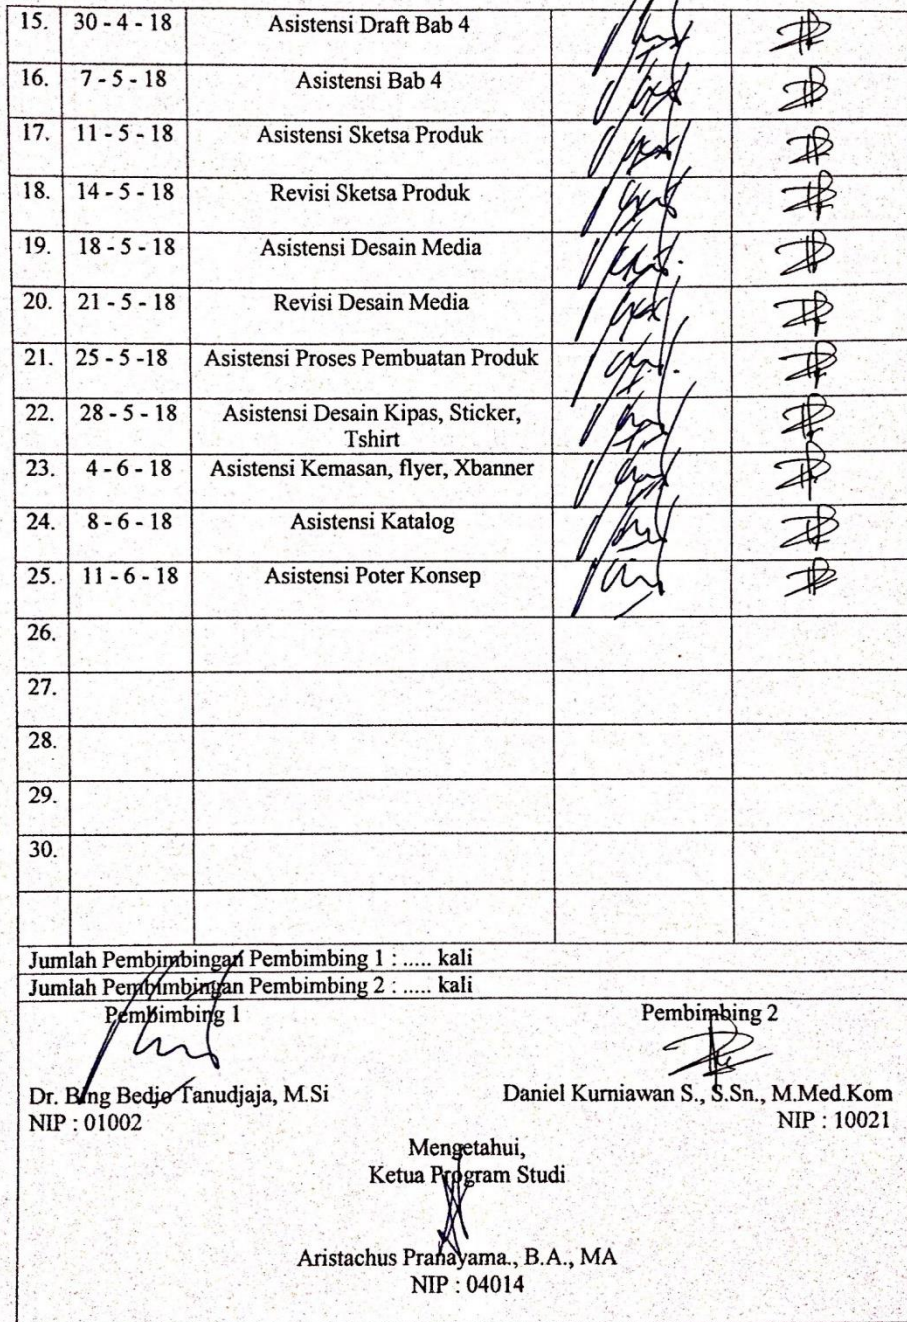 15. 30 - 4 - 18 Asistensi Draft Bab 4
16. 7 - 5 - 18 Asistensi Bab 4
17. 11 - 5 - 18 Asistensi Sketsa Produk
18. 14 - 5 - 18 Revisi Sketsa Produk
19. 18 - 5 - 18 Asistensi Desain Media
20. 21 - 5 - 18 Revisi Desain Media
21. 25 - 5 -18 Asistensi Proses Pembuatan Produk
22. 28 - 5 - 18 Asistensi Desain Kipas, Sticker,
Tshirt
23. 4 - 6 - 18 Asistensi Kemasan, flyer, Xbanner
24. 8 - 6 - 18 Asistensi Katalog
25. 11 - 6 - 18 Asistensi Poter Konsep
26.
27.
28.
29.
30.
Jumlah Pembimbingan Pembimbing 1 : ..... kali
Jumlah Pembimbingan Pembimbing 2 : ..... kali
Pembimbing 1 Pembimbing 2
Dr. Bing Bedjo Tanudjaja, M.Si Daniel Kurniawan S., S.Sn., M.Med.Kom
NIP : 01002 NIP : 10021
Mengetahui,
Ketua Program Studi
Aristachus Pranayama., B.A., MA
NIP : 04014